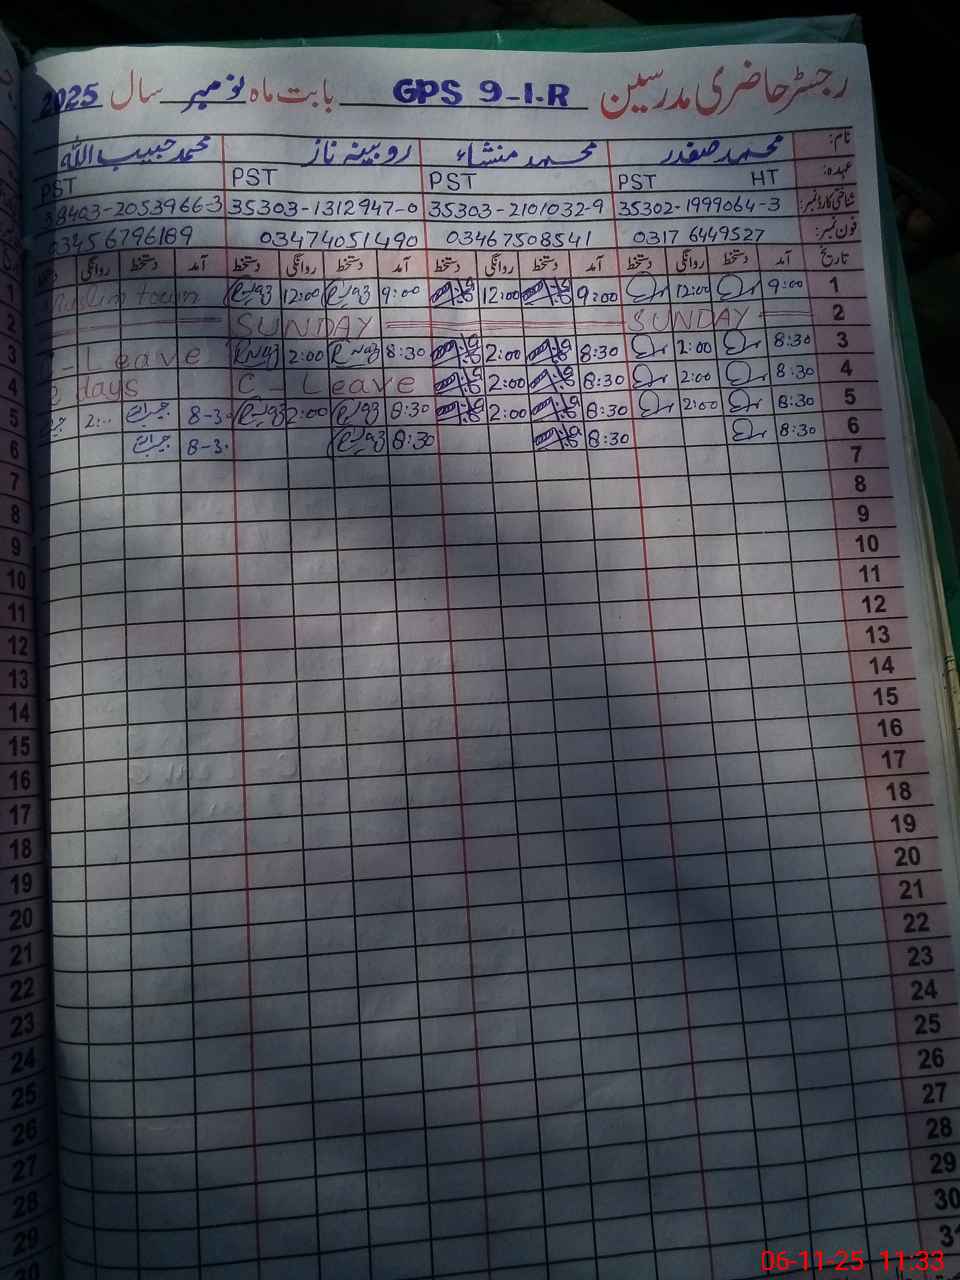 رجسٹر حاضری مدرسین GPS 9-I.R بابت ماہ نومبر سال 2025
نام: محمد صفدر محمد منشاء روبینہ ناز محمد حبیب اللہ
عہدہ: HT PST PST PST PST
شناختی کارڈ نمبر: 35302-1999064-3 35303-2101032-9 35303-1312947-0 38403-2053966-3
فون نمبر: 0317 6449527 03467508541 03474051490 03456796189
تاریخ آمد دستخط روانگی دستخط آمد دستخط روانگی دستخط آمد دستخط روانگی دستخط آمد دستخط روانگی
1 9:00 12:00 9:00 12:00 9:00 12:00 town
2 SUNDAY SUNDAY
3 8:30 2:00 8:30 2:00 8:30 2:00 Leave
4 8:30 2:00 8:30 2:00 C - Leave days
5 8:30 2:00 8:30 2:00 8:30 2:00 8-3. 2:..
6 8:30 8:30 8:30 8-3.
7
8
9
10
11
12
13
14
15
16
17
18
19
20
21
22
23
24
25
26
27
28
29
30
31
1
2
3
4
5
6
7
8
9
10
11
12
13
14
15
16
17
18
19
20
21
22
23
24
25
26
27
28
29
30
06-11-25 11:33